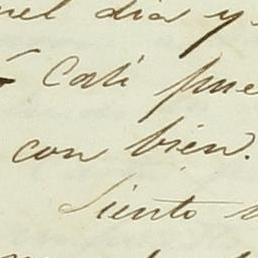 el dia y
Cali pue
con bien.
Siento